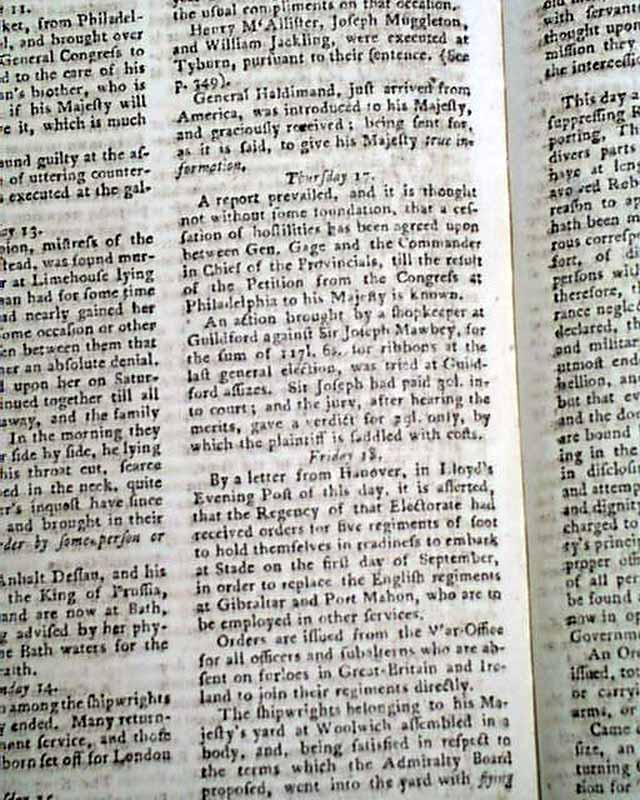 11.
ket, from Philadel-
l, and brought over
General Congress to
d to the care of his
an's brother, who is
if his Majeſty will
e it, which is much
ound guilty at the aſ-
of uttering counter-
s executed at the gal-
ay 13.
pion, miſtreſs of the
ſtead, was found mur-
r at Limehouſe lying
man had for ſome time
ad nearly gained her
ſome occaſion or other
en between them that
her an abſolute denial,
d upon her on Satur-
inued together till all
away, and the family
In the morning they
r ſide by ſide, he lying
his throat cut, ſcarce
bed in the neck, quite
er's inqueſt have ſince
and brought in their
rder by ſome perſon or
Anhalt Deſſau, and his
the King of Pruſſia,
and are now at Bath,
g adviſed by her phy-
he Bath waters for the
ealth.
nday 14.
n among the ſhipwrights
y ended. Many return-
ment ſervice, and thoſe
born ſet off for London
the uſual compliments on that occaſion.
Henry M'Alliſter, Joſeph Muggleton,
and William Jackling, were executed at
Tyburn, purſuant to their ſentence. (See
p. 349).
General Haldimand, juſt arrived from
America, was introduced to his Majeſty,
and graciouſly received; being ſent for,
as it is ſaid, to give his Majeſty true in-
formation.
Thurſday 17.
A report prevailed, and it is thought
not without ſome foundation, that a ceſ-
ſation of hoſtilities has been agreed upon
between Gen. Gage and the Commander
in Chief of the Provincials, till the reſult
of the Petition from the Congreſs at
Philadelphia to his Majeſty is known.
An action brought by a ſhopkeeper at
Guildford againſt Sir Joſeph Mawbey, for
the ſum of 117l. 6s. for ribbons at the
laſt general election, was tried at Guild-
ford aſſizes. Sir Joſeph had paid 30l. in-
to court; and the jury, after hearing the
merits, gave a verdict for 29l. only, by
which the plaintiff is ſaddled with coſts.
Friday 18.
By a letter from Hanover, in Lloyd's
Evening Poſt of this day, it is aſſerted,
that the Regency of that Electorate had
received orders for five regiments of foot
to hold themſelves in readineſs to embark
at Stade on the firſt day of September,
in order to replace the Engliſh regiments
at Gibraltar and Port Mahon, who are to
be employed in other ſervices.
Orders are iſſued from the War-Office
for all officers and ſubalterns who are ab-
ſent on furloes in Great-Britain and Ire-
land to join their regiments directly.
The ſhipwrights belonging to his Ma-
jeſty's yard at Woolwich aſſembled in a
body, and, being ſatisfied in reſpect to
the terms which the Admiralty Board
propoſed, went into the yard with flying
with ſervant
thought upon
miſſion they
the interceſſi
This day a
ſuppreſſing R
porting, Th
divers parts
have at leng
avowed Reb
reaſon to ap
hath been m
rous correſp
fort, of di
perſons with
therefore, t
rance neglec
declared, th
and militar
utmoſt ende
bellion, an
but that ev
and the do
are bound
ing in the
in diſcloſi
and attemp
and dignity
charged to
ty's princip
proper off
of all per
be found
now in op
Governme
An Or
iſſued, to
or carry
arms, or
Came
ſize, an
turning
tion for